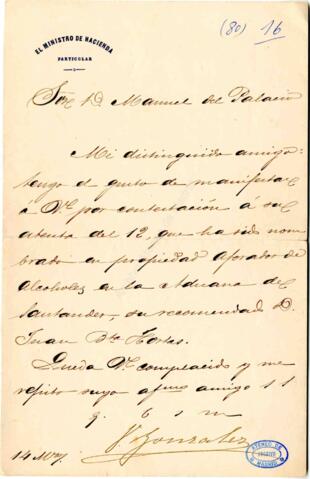 (80) 16
EL MINISTRO DE HACIENDA
PARTICULAR
Sor. D. Manuel del Palacio
Mi distinguido amigo:
tengo el gusto de manifestar
a V. por contestación á su
atenta del 12, que ha sido nom
brado en propiedad aforador de
alcoholes en la Aduana de
Santander, su recomendado D.
Juan Bta
Queda V. complacido y me
repito suyo afmo amigo s s
q b s m
V. Gonzalez
14
ATENEO DE
MADRID